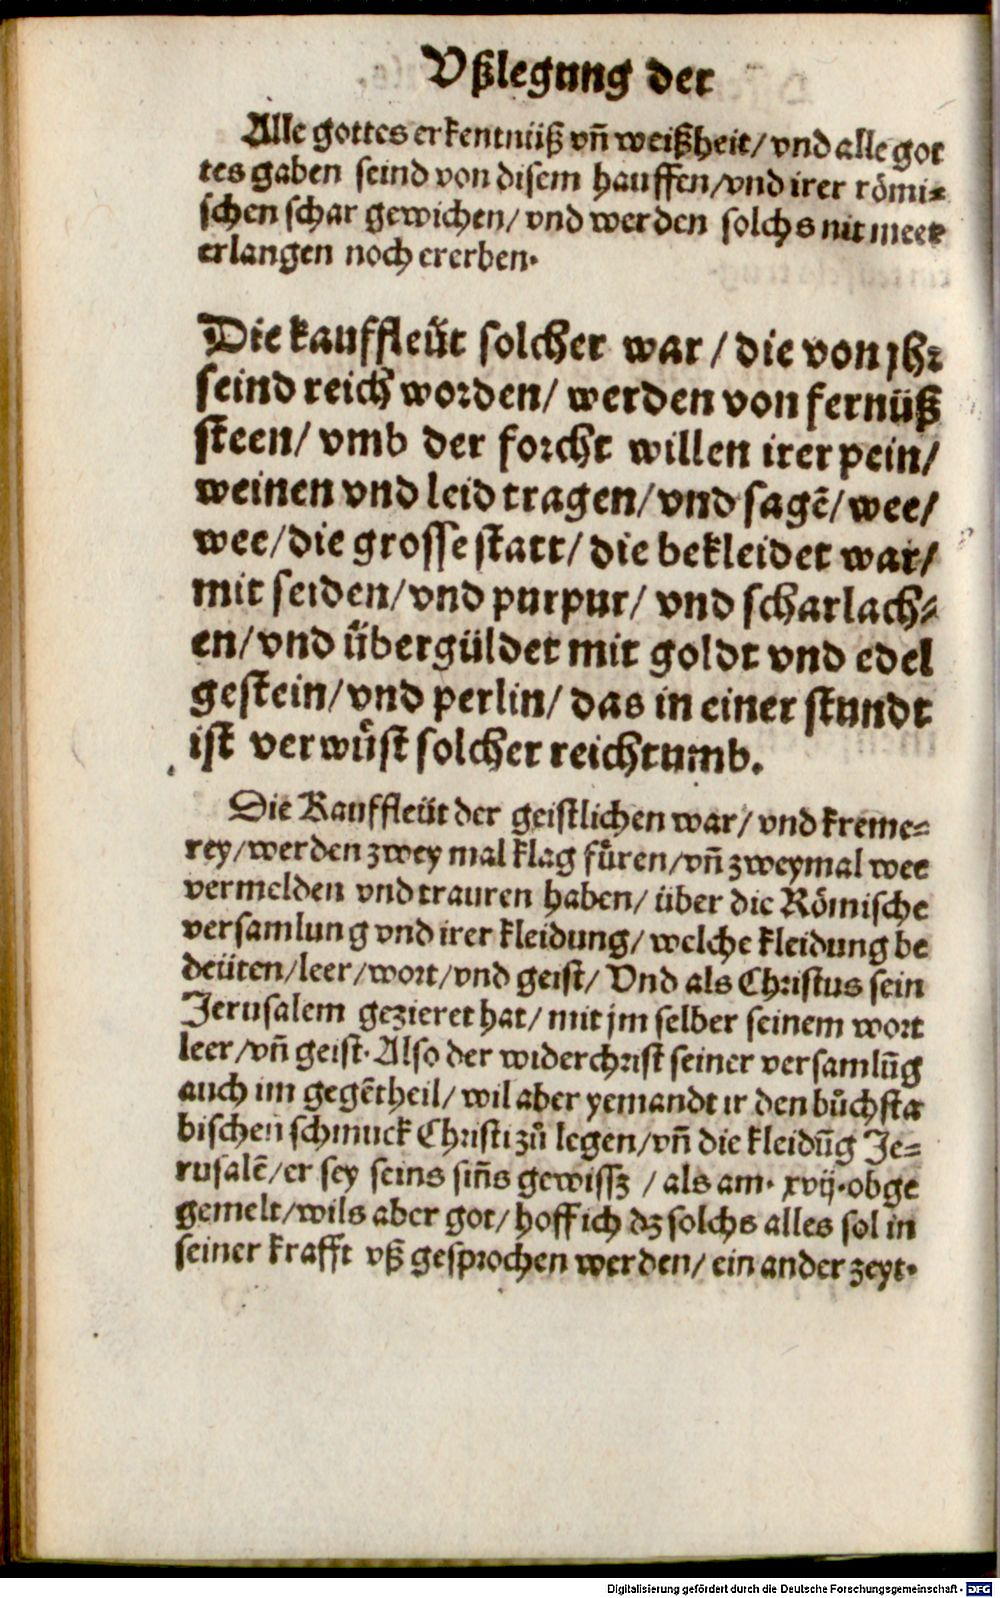 Vßlegung der
Alle gottes erkentnüß vñ weißheit/ vnd alle got
tes gaben seind von disem hauffen/vnd irer römi-
schen schar gewichen/ vnd werden solchs nit meer
erlangen noch ererben.
Die kauffleüt solcher war / die von jhr
seind reich worden/ werden von fernüß
steen/ vmb der forcht willen irer pein/
weinen vnd leid tragen/ vnd sagẽ/ wee/
wee/ die grosse statt/ die bekleidet war/
mit seiden/ vnd purpur/ vnd scharlach-
en/ vnd übergüldet mit goldt vnd edel
gestein/ vnd perlin/ das in einer stundt
ist verwůst solcher reichtumb.
Die Kauffleüt der geistlichen war/ vnd kreme-
rey/ werden zwey mal klag fůren/ vñ zweymal wee
vermelden vnd trauren haben/ über die Römische
versamlung vnd irer kleidung/ welche kleidung be
deüten/ leer/ wort/ vnd geist/ Vnd als Christus sein
Jerusalem gezieret hat/ mit jm selber seinem wort
leer/ vñ geist. Also der widerchrist seiner versamlũg
auch im gegẽtheil/ wil aber yemandt ir den bůchsta
bischen schmuck Christi zů legen/ vñ die kleidũg Je-
rusalẽ/ er sey seins siñs gewissz / als am. xvij. obge
gemelt/ wils aber got/ hoff ich dz solchs alles sol in
seiner krafft vß gesprochen werden/ ein ander zeyt.
Digitalisierung gefördert durch die Deutsche Forschungsgemeinschaft - DFG